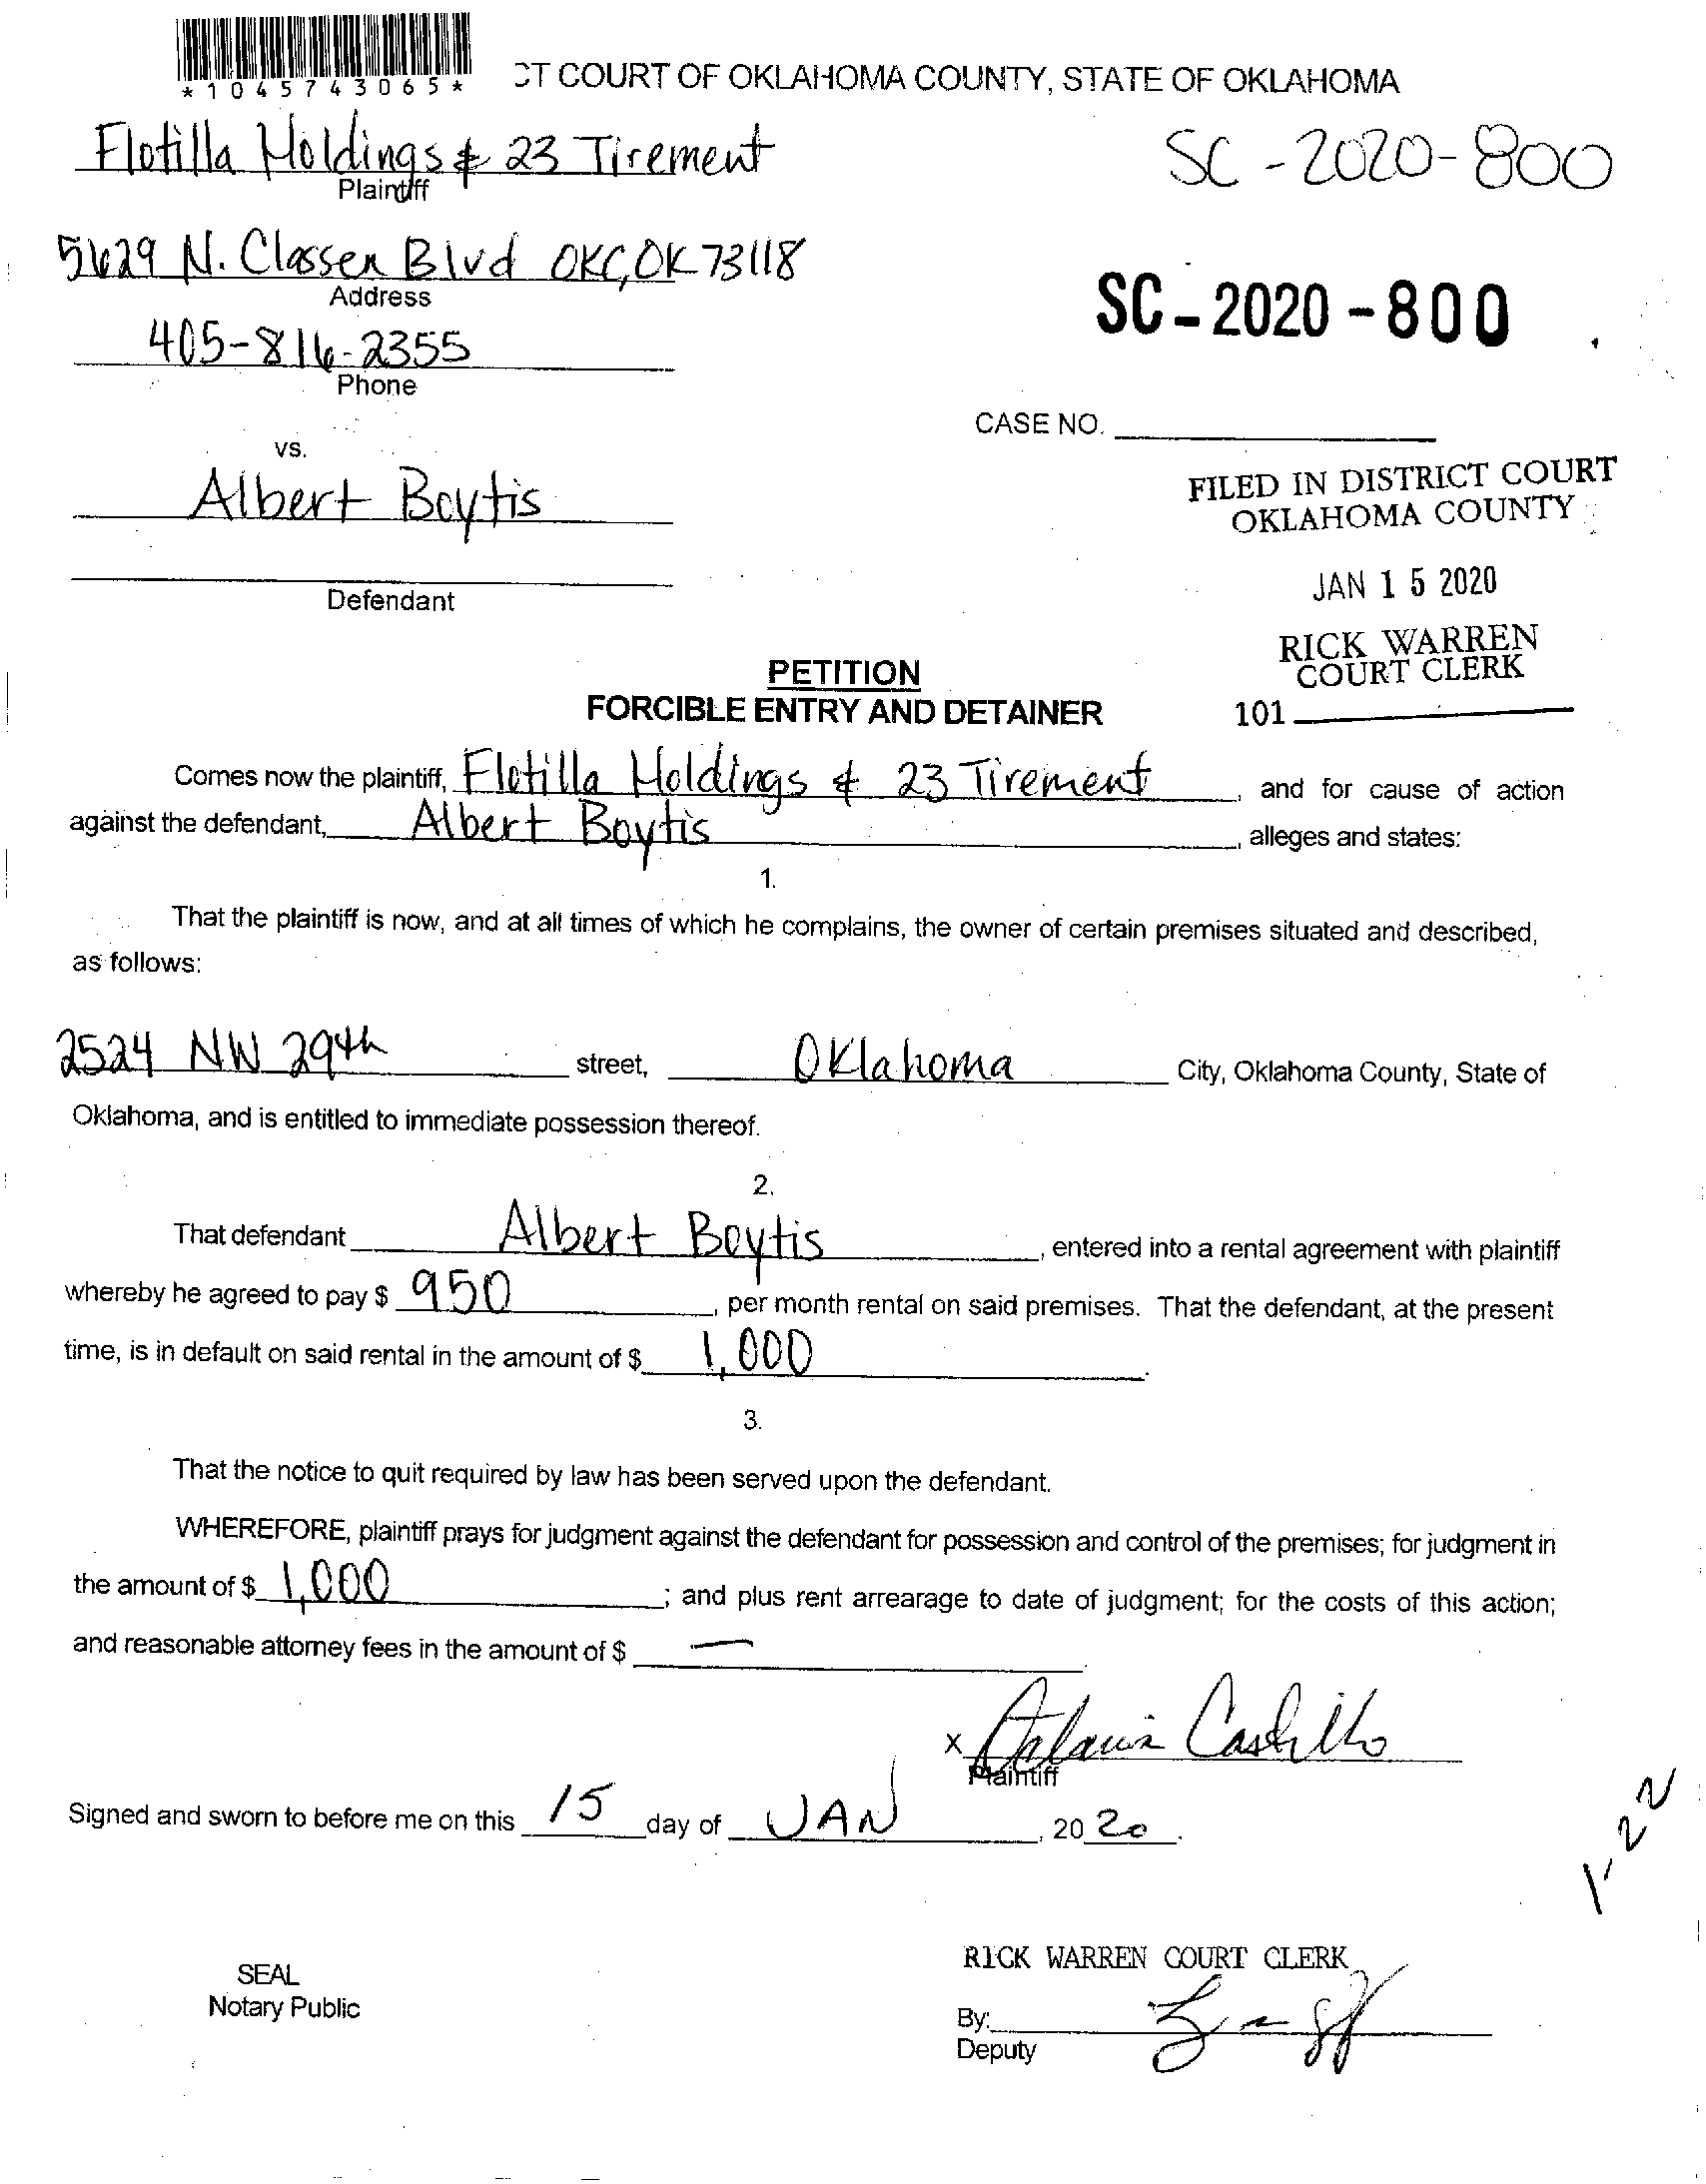 *1045743065*
CT COURT OF OKLAHOMA COUNTY, STATE OF OKLAHOMA
Flotilla Holdings & 23 Tirement
SC-2020-800
Plaintiff
5629 N. Classen Blvd OKC, OK 73118
Address
SC-2020-800
405-816-2355
Phone
CASE NO.
vs.
Albert Boytis
FILED IN DISTRICT COURT
OKLAHOMA COUNTY
Defendant
JAN 15 2020
RICK WARREN
COURT CLERK
101
PETITION
FORCIBLE ENTRY AND DETAINER
Comes now the plaintiff, Flotilla Holdings & 23 Tirement, and for cause of action
against the defendant, Albert Boytis, alleges and states:
1.
That the plaintiff is now, and at all times of which he complains, the owner of certain premises situated and described,
as follows:
2524 NW 29th street, Oklahoma City, Oklahoma County, State of
Oklahoma, and is entitled to immediate possession thereof.
2.
That defendant Albert Boytis, entered into a rental agreement with plaintiff
whereby he agreed to pay $ 950, per month rental on said premises. That the defendant, at the present
time, is in default on said rental in the amount of $ 1,000.
3.
That the notice to quit required by law has been served upon the defendant.
WHEREFORE, plaintiff prays for judgment against the defendant for possession and control of the premises; for judgment in
the amount of $ 1,000; and plus rent arrearage to date of judgment; for the costs of this action;
and reasonable attorney fees in the amount of $ —
x Castillo
Plaintiff
Signed and sworn to before me on this 15 day of JAN, 2020.
1-22
RICK WARREN COURT CLERK
SEAL
Notary Public
By:
Deputy